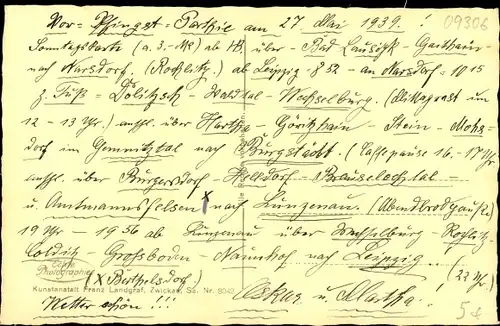 09306
Vor-Pfingst-Parthie am 27. Mai 1939. !
Sonntagskarte (a. 3.- Mk) ab Hb. über - Bad Lausigk - Geithain -
nach Narsdorf. (Rochlitz.) ab Leipzig - 8 52 - an Narsdorf - 10 15
z. Fuß - Dölitzsch - Waldtal - Wechselburg. (Mittagrast um
12 - 13 Uhr.) anschl. über Hartha - Göritzhain Stein - Mohs-
dorf im Chemnitztal nach Burgstädt. (Caffepause 16. - 17 Uhr
anschl. über Burgersdorf - Helsdorf - Brauselochtal -
u. Amtmannsfelsen x nach Lunzenau. (Abendbrodpause)
19 Uhr - 19 56 ab Lunzenau über Wechselburg - Rochlitz-
Colditz - Großboden - Naunhof nach Leipzig. (22 Uhr)
Photographie
(x Berthelsdorf.)
Kunstanstalt Franz Landgraf, Zwickau, Sa. Nr. 8042
Wetter schön!!! Oskar u. Martha.